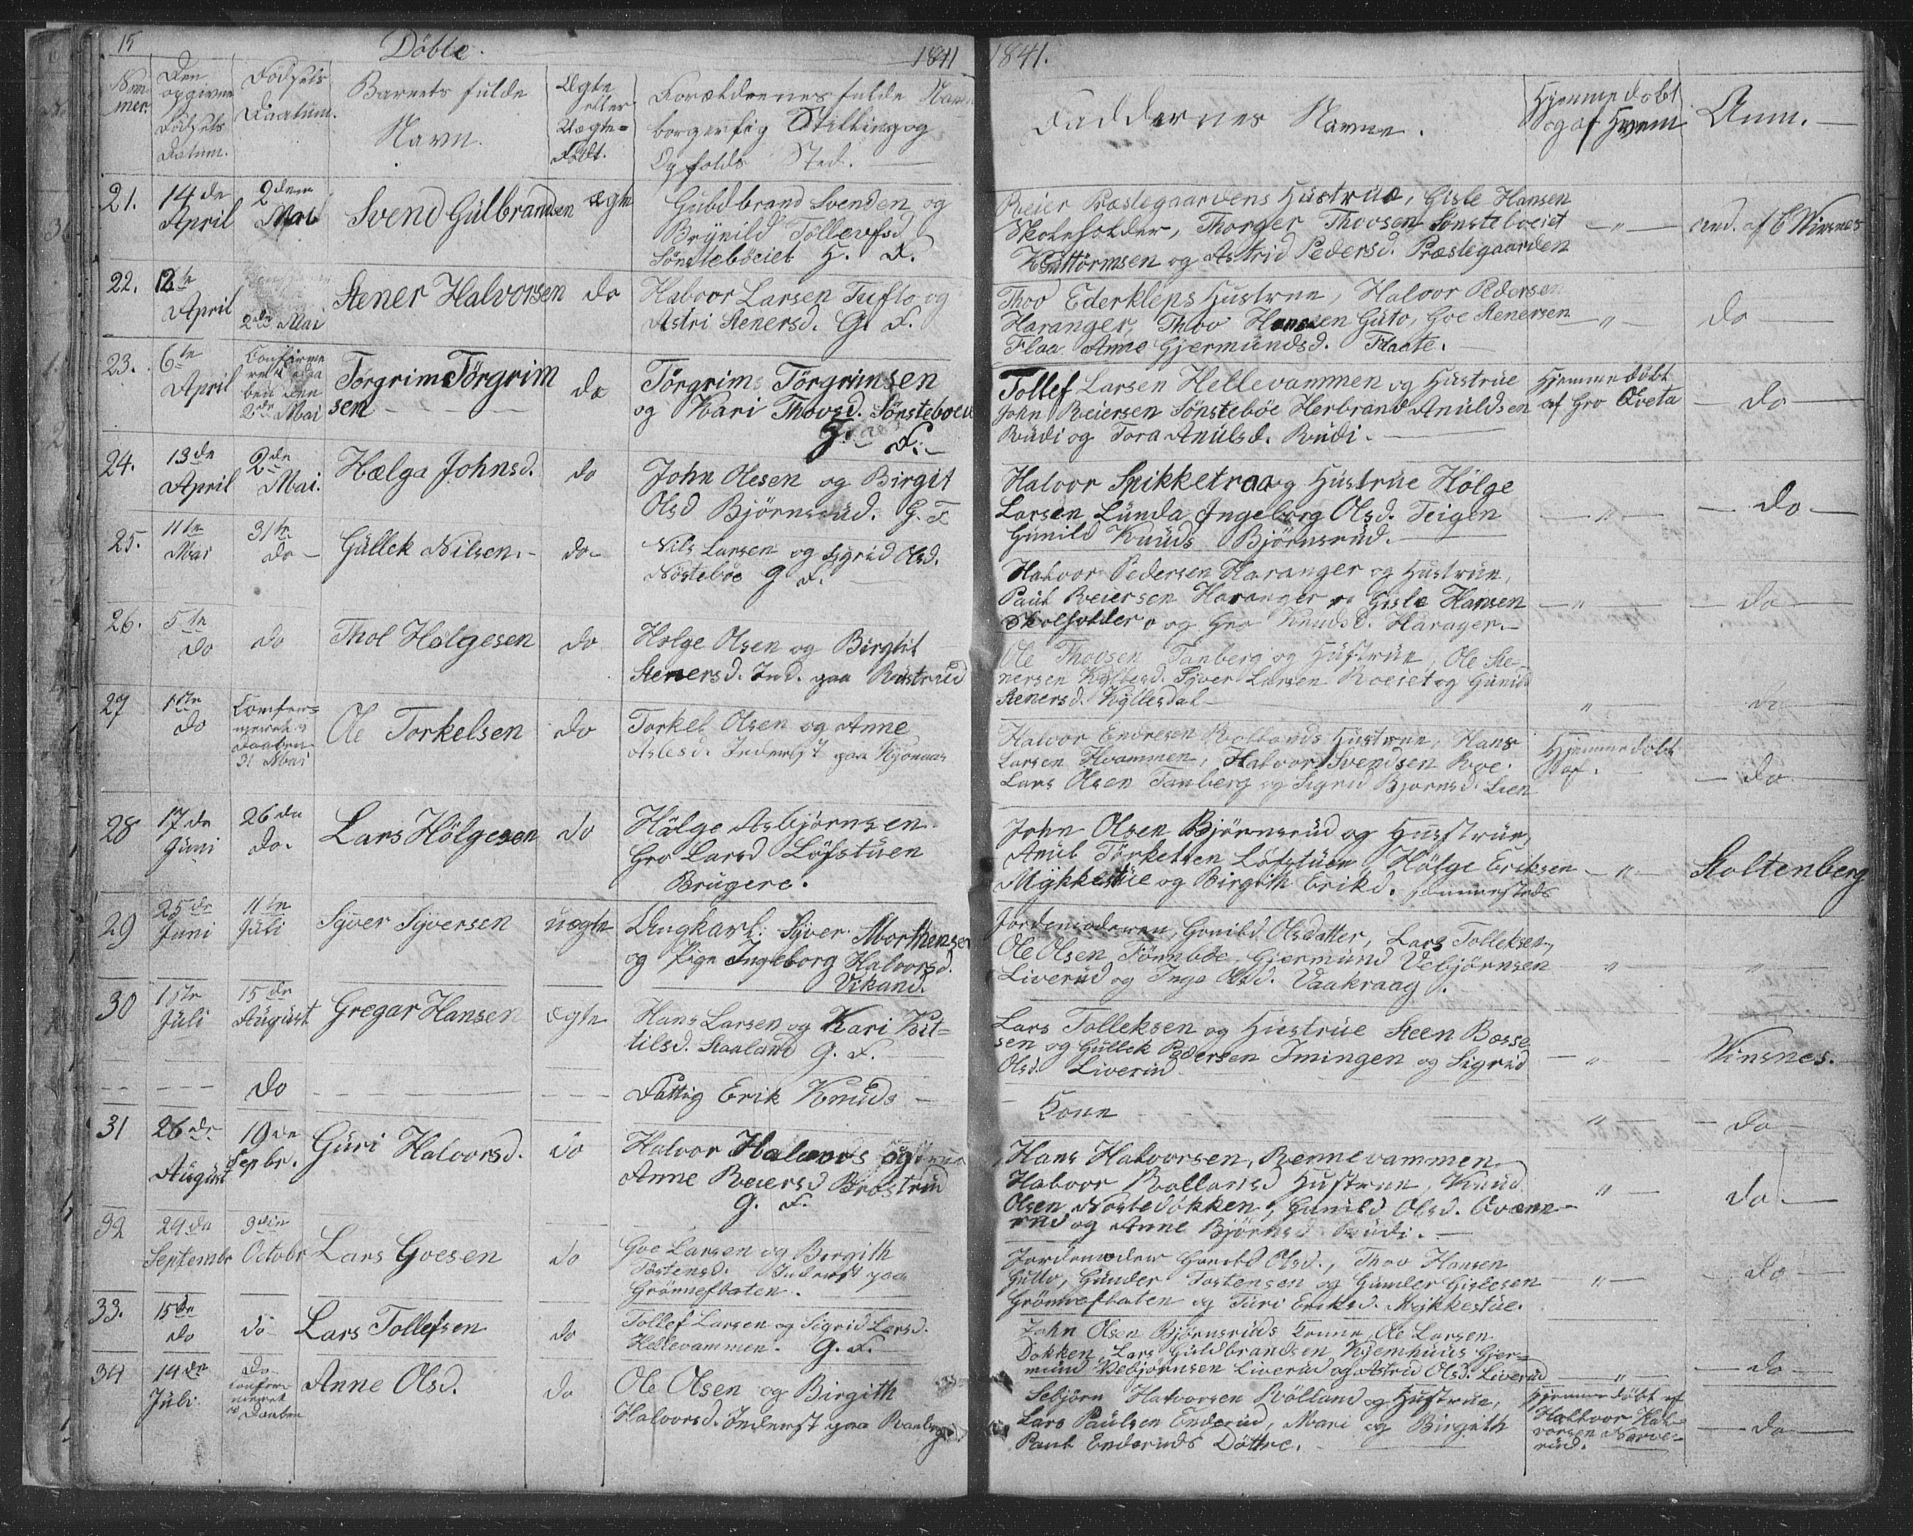 15
Döbte.
1841
1841.
Num-
mer.
Den
opgivne
Födsels
Datum.
Födsels
Daatum.
Barnets fulde
Navn.
Ægte
eller
Uægte
Födt.
Forældrenes fulde Navn
borgerlig Stilling og
Opholds Sted.
Faddernes Navne.
Hjemmedöbt
og af Hvem
Anm.
21.
14de
April
2den
Mai
Svend Gulbrandsen
ægte
Guldbrand Svendsen og
Brynild Tollevsd
Sönstebøeiet H. F.
Beier Præstegaardens Hustrue, Gisle Hansen
Skoleholder, Thorger Thovsen Sønsteboeiet
Guttormsen og Astrid Pedersd. Præstegaarden
and. af E Winsnes
22.
12te
April
2den Mai
Stener Halvorsen
do
Halvor Larsen Tufto og
Astri Stenersd. G. F.
Thov Ederkleps Hustrue, Halvor Pedersen
Haranger, Thov Hansen Guto, Goe Stenersen
Flaa Anne Gjermundsd. Flaate.
do
23.
6te
April
Confirme
ret
2den Mai
Torgrim Törgrim
sen
do
Törgrims Törgrimsen
og Kari Thovsd. Sønsteboe
G. F.
Tollef Larsen Hellevammen og Hustrue
John Reiersen Sönstebøe Herbrand Anuldsen
Rudi og Tora Anulsd. Rudi.
Hjemmedöbt
af Gro Qveta
do
24.
13de
April
2den
Mai.
Hælga Johnsd.
do
John Olesen og Birgit
Olsd Bjørnsrud. G. F
Halvor Spikketraa og Hustrue Hölge
Larsen Lunda Ingeborg Olsd. Teigen
Gunild Knuds Bjørnsrud.
do
25.
11te
Mai
31te
do
Gullek Nilsen.
do
Nils Larsen og Sigrid Olsd.
Nöstebøe G. F.
Halvor Pedersen Haranger og Hustrue,
Paul Reiersen Haranger og Gisle Hansen
Skolholder og Gro Knudsd. Harager.
do
26.
5te
do
do
Thol Holgesen
do
Holge Olsen og Birgit
Stenersd. Ind. paa Rustrud
Ole Thovsen Tanberg og Hustrue, Ole Ste-
nersen Kyllesd. Syver Larsen Roeiet og Gunild
Stenersd. Kyllesdal
do
27
1ste
do
Confer-
meret
Daaben
31 Mai
Ole Torkelsen
do
Torkel Olsen og Anne
Aslesd. Inderst paa Kjönaas
Halvor Endresen Rollands Hustrue, Hans
Larsen Hvammen, Halvor Svendsen Roe.
Lars Olsen Tanberg og Sigrid Bjornsd. Lien
Hjemmedöbt
af.
do
28
17de
Juni
26de
do.
Lars Hölgesen
do
Hölge Asbjörnsen
Gro Larsd Löfstuen
Brugere.
John Olsen Bjørnsrud og Hustrue,
Anul Törkelsen Löfstuen Hölge Eriksen
Mykkestue og Birgith Erikd. sammesteds
Stoltenberg
29
25de
Juni
11te
Juli
Syver Syversen
uægte
Ungkarl: Syver Morthensen
og Pige Ingeborg Halvorsd.
Vikand.
Jordemoderen, Gunild Olsdatter, Lars Tolleksen,
Ole Olsen Tönnböe, Gjermund Vebjørnsen
Liverud og Inge Olsd. Vaakraag.
30
17te
Juli
15de
August
Gregar Hansen
ægte
Hans Larsen og Kari Kit-
tilsd. Skaaland G. F.
Lars Tolleksen og Hustrue Steen Bosse
sen og Gullek Pedersen Imingen og Sigrid
Olsd. Liverud.
Winsnes.
do
Fattig Erik Knuds
Kone
do
31
26de
August
19de
Sepbr.
Guri Halvorsd.
do
Halvor Halvors og
Anne Reiersd Brostrud
G. F.
Hans Halvorsen, Rennevammen
Halvor Rollansd Hustrue, Knud
Olsen Nostedökken, Gunild Olsd. Qvænn-
rud og Anne Bjørnsd Rudi.
do
32
29de
Septembr
3die
Octobr
Lars Goesen
do
Goe Larsen og Birgith
Tostensd. Inderst paa
Grönneflaten.
Jordemoder Gunild Olsd., Thov Hansen
Gutto, Gunder Tostensen og Gunder Gislesen
Grönneflaten og Turi Eriksd. Mykkestue.
do
33.
15de
do
do
Lars Tollefsen
do
Tollef Larsen og Sigrid Larsd.
Hellevammen. G. F.
John Olsen Bjørnsruds Konne, Ole Larsen
Dokken, Lars Guldbrandsen Kjemhuus Gjer-
mund Vebjørnsen Liverud og Astrid Olsd. Liverud
do
34
14de
Juli
do
confer-
meret
Daaben
Anne Olsd.
do
Ole Olsen og Birgith
Halvorsd. Inderst paa
Sebjörn Halvorsen Rölland og Hustrue,
Lars Paulsen Enderud, Mari og Birgith
Paul Enderuds Döttre.
Hjemmedöbt af
Haltvor Hal-
vorsen Narve-
rud.
do